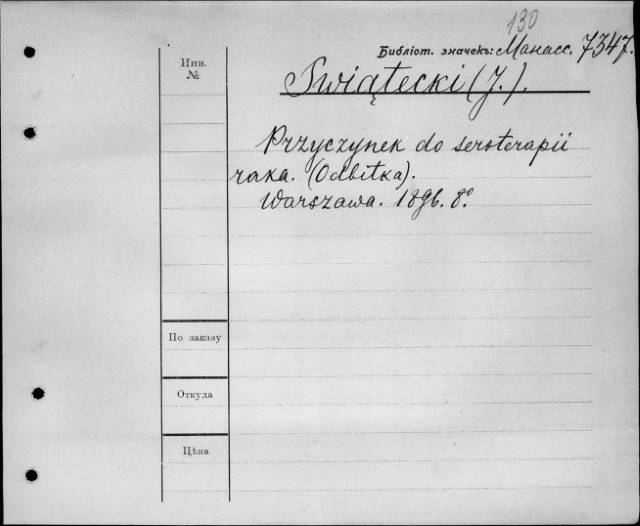 130
Библіот. значекъ: Манасс. 7347.
Инв.
№
Swiątecki (J.).
Przyczynek do seroterapii
raka. (Odbitka).
Warszawa. 1896. 8°
По заказу
Откуда
Цѣна